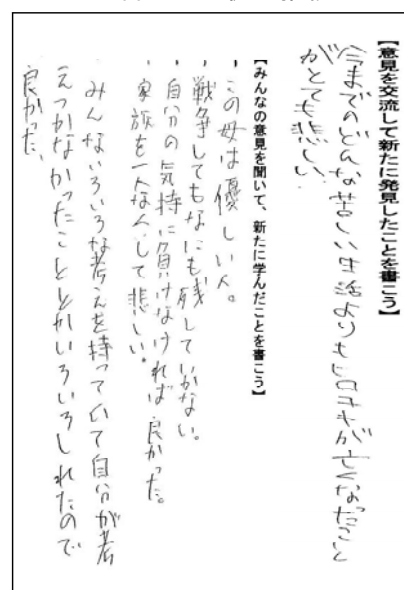 【意見を交流して新たに発見したことを書こう】
今までのどんな苦しい生活よりもヒロユキが亡くなったこと
がとても悲しい。
【みんなの意見を聞いて、新たに学んだことを書こう】
・この母は優しい人。
・戦争してもなにも残していかない。
・自分の気持に負けなければ良かった。
・家族を一人なくして悲しい。
・みんないろいろな考えを持っていて自分が考
えつかなかったこととかいろいろしれたので
良かった。